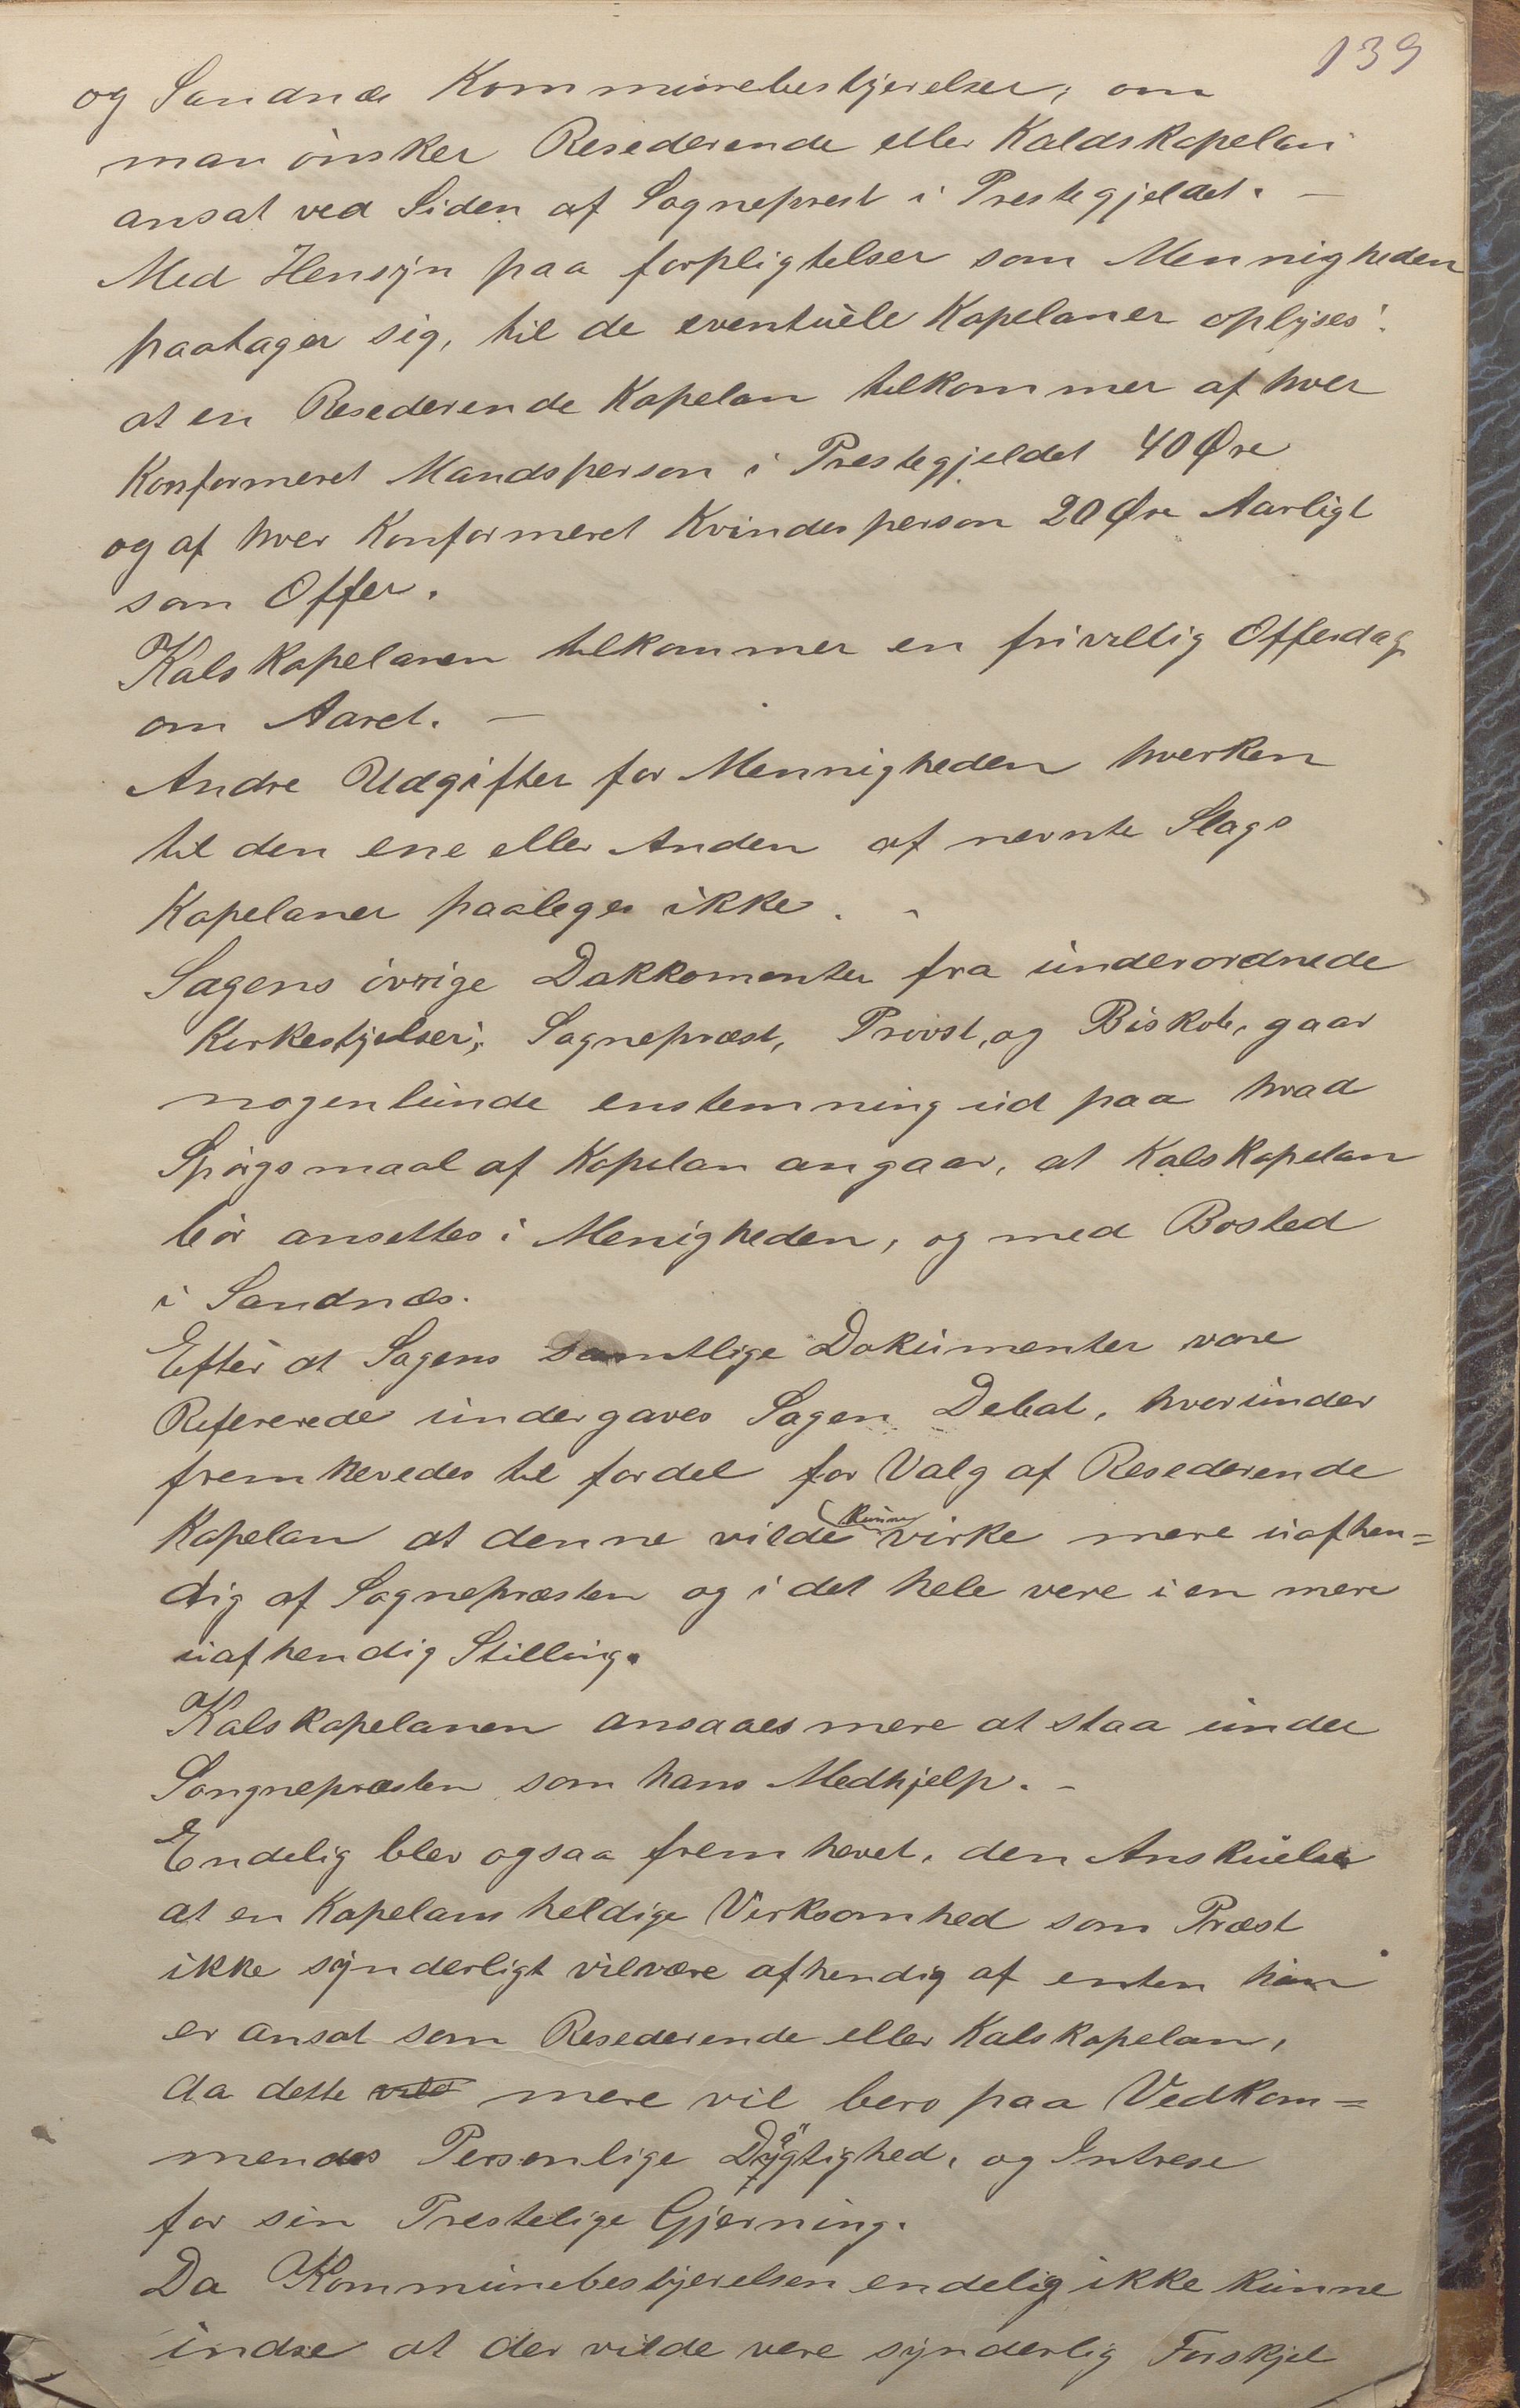 139
og Sandnæs Kommunebestyrelser; om
man ønsker Resederende eller Kaldskapelan
ansat ved Siden af Sogneprest i Prestegjeldet. —
Med Hensyn paa forpligtelser som Mennigheden
paatager sig, til de eventuele Kapelaner oplyses:
at en Resederende Kapelan tilkommer af hver
Konformeret Mandsperson i Prestegjeldet 40 Øre
og af hver Konformeret Kvindesperson 20 Øre Aarligt
som Offer.
Kalskapelanen tilkommer en frivillig Offerdag
om Aaret. —
Andre Udgifter for Mennigheden hverken
til den ene eller Anden af nevnte Slags
Kapelaner paaleges ikke. -
Sagens øvrige Dokkomenter fra underordnede
Kirkestyelser; Sognepræst, Provst, og Biskob, gaar
nogenlunde enstemning ud paa hvad
Spørgsmaal af Kapelan angaar, at Kalskapelan
bør ansettes i Menigheden, og med Bosted
i Sandnæs.
Efter at Sagens samtlige Dokumenter vare
Refererede undergaves Sagen Debat, hvorunder
fremhevedes til fordel for Valg af Resederende
Kapelan at denne vilde kunne virke mere uafhen=
dig af Sognepræsten og i det hele vere i en mere
uafhendig Stilling.
Kalskapelanen ansaaes mere at staa under
Songnepræsten som hans Medhjelp. -
Endelig blev ogsaa fremhevet, den Anskuelse
at en Kapelans heldige Virksomhed som Præst
ikke synderligt vil være afhendig af enten han
er ansat som Resederende eller Kalskapelan,
da dette vilde mere vil bero paa Vedkom=
mendes Personlige Dygtighed, og Intrese
for sin Prestelige Gjerning.
Da Kommunebestyerelsen endelig ikke kunne
indse at der vilde vere synderlig Forskjel